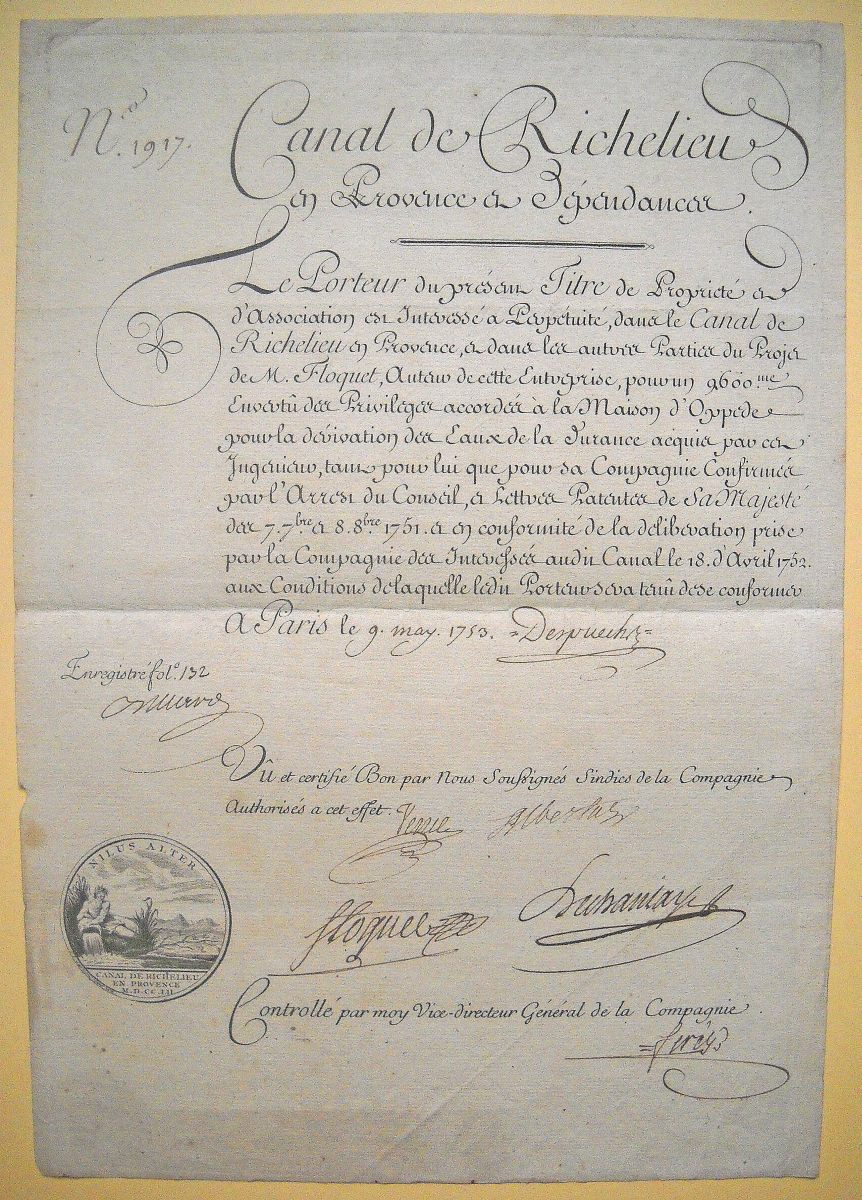 N.º 1917.
Canal de Richelieu
en Provence et Dépendances.
Le Porteur du présent Titre de Proprieté et
d'Association est Interessé a Perpétuité, dans le Canal de
Richelieu en Provence, et dans les autres Parties du Projet
de M. Floquet, Auteur de cette Entreprise, pour un 9600.me
En vertû des Privileges accordés à la Maison d'Oppede
pour la dérivation des Eaux de la Durance acquis par cet
Ingenieur, tant pour lui que pour sa Compagnie Confirmés
par l'Arrest du Conseil, et Lettres Patentes de Sa Majesté
des 7. 7.bre et 8. 8.bre 1751. et en conformité de la déliberation prise
par la Compagnie des Interessés audit Canal le 18. d'Avril 1752.
aux Conditions de laquelle ledit Porteur sera tenû de se conformer
A Paris le 9. may. 1753. =Despuechz=
Enregistré fol.º 132
Vû et certifié Bon par Nous Soussignés Sindics de la Compagnie
Authorisés a cet effet.
Floquet
NILUS ALTER
CANAL DE RICHELIEU
EN PROVENCE
M.D.CC.LII
Controllé par moy Vice-directeur Général de la Compagnie.